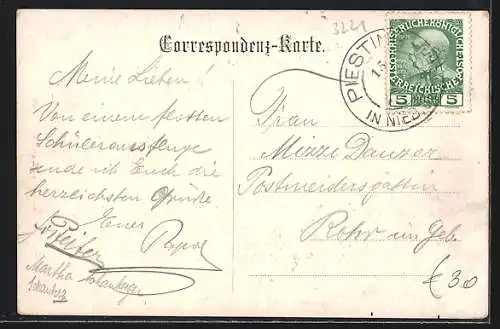 3221
Correspondenz-Karte.
PIESTING
IN NIED
KAISERLICHE KÖNIGLICHE
ÖSTERREICHISCHE POST
5 5
Meine Lieben!
Von einem
Schülerausfluge
sende ich Euch die
herzlichsten Grüße
Euer
Martha
Frau
Mizzi Danzer
Postmeistersgattin
Rohr im Geb.
€ 30